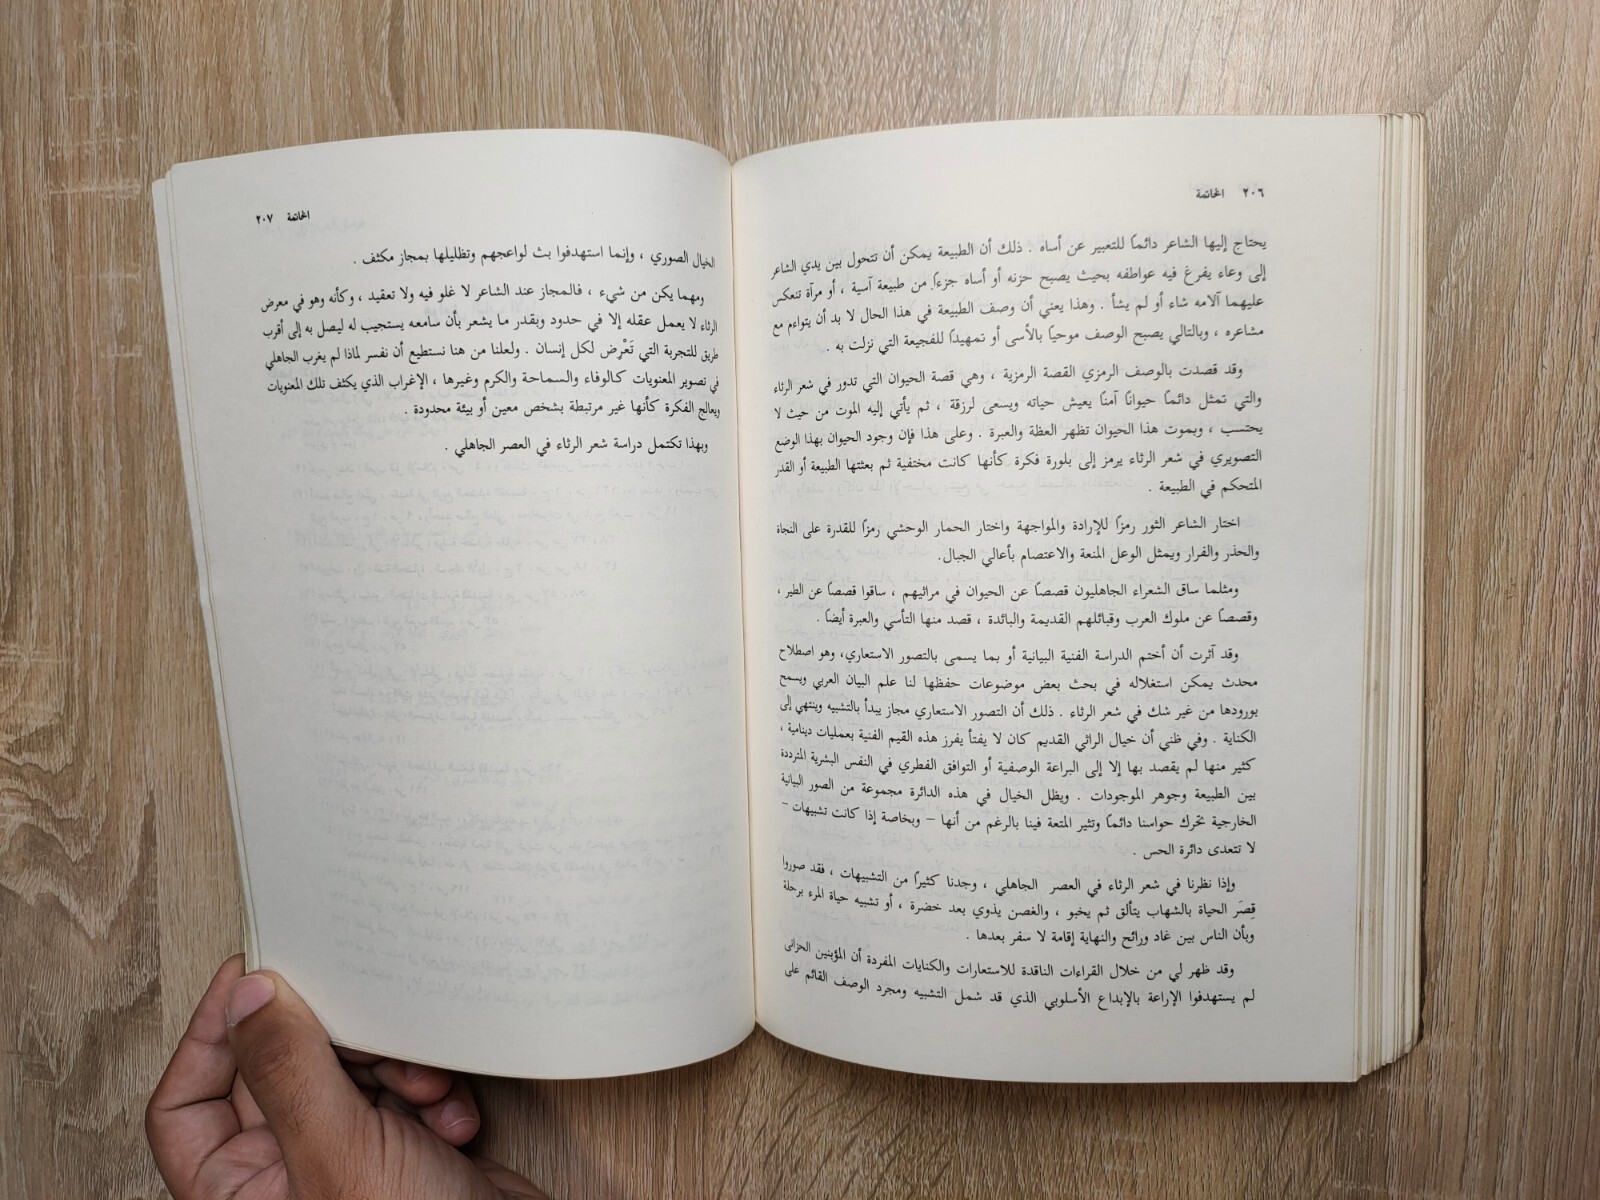 ٢٠٦ الخاتمة
يحتاج إليها الشاعر دائمًا للتعبير عن أساه . ذلك أن الطبيعة يمكن أن تتحول بين يدي الشاعر
إلى وعاء يفرغ فيه عواطفه بحيث يصبح حزنه أو أساه جزءاً من طبيعة آسية ، أو مرآة تنعكس
عليهما آلامه شاء أو لم يشأ . وهذا يعني أن وصف الطبيعة في هذا الحال لا بد أن يتواءم مع
مشاعره ، وبالتالي يصبح الوصف موحياً بالأسى أو تمهيدًا للفجيعة التي نزلت به .
وقد قصدت بالوصف الرمزي القصة الرمزية ، وهي قصة الحيوان التي تدور في شعر الرثاء
والتي تمثل دائمًا حيوانًا آمنًا يعيش حياته ويسعى لرزقة ، ثم يأتي إليه الموت من حيث لا
يحتسب ، وبموت هذا الحيوان تظهر العظة والعبرة . وعلى هذا فإن وجود الحيوان بهذا الوضع
التصويري في شعر الرثاء يرمز إلى بلورة فكرة كأنها كانت مختفية ثم بعثتها الطبيعة أو القدر
المتحكم في الطبيعة .
اختار الشاعر الثور رمزًا للإرادة والمواجهة واختار الحمار الوحشي رمزًا للقدرة على النجاة
والحذر والفرار ويمثل الوعل المنعة والاعتصام بأعالي الجبال.
ومثلما ساق الشعراء الجاهليون قصصًا عن الحيوان في مراثيهم ، ساقوا قصصًا عن الطير ،
وقصصًا عن ملوك العرب وقبائلهم القديمة والبائدة ، قصد منها التأسي والعبرة أيضًا .
وقد آثرت أن أختم الدراسة الفنية البيانية أو بما يسمى بالتصور الاستعاري، وهو اصطلاح
محدث يمكن استغلاله في بحث بعض موضوعات حفظها لنا علم البيان العربي ويسمح
بورودها من غير شك في شعر الرثاء . ذلك أن التصور الاستعاري مجاز يبدأ بالتشبيه وينتهي إلى
الكناية . وفي ظني أن خيال الراثي القديم كان لا يفتأ يفرز هذه القيم الفنية بعمليات دينامية ،
كثير منها لم يقصد بها إلا إلى البراعة الوصفية أو التوافق الفطري في النفس البشرية المترددة
بين الطبيعة وجوهر الموجودات . ويظل الخيال في هذه الدائرة مجموعة من الصور البيانية
الخارجية تحرك حواسنا دائمًا وتثير المتعة فينا بالرغم من أنها – وبخاصة إذا كانت تشبيهات –
لا تتعدى دائرة الحس .
وإذا نظرنا في شعر الرثاء في العصر الجاهلي ، وجدنا كثيرًا من التشبيهات ، فقد صوروا
قِصَر الحياة بالشهاب يتألق ثم يخبو ، والغصن يذوي بعد خضرة ، أو تشبيه حياة المرء برحلة
وبأن الناس بين غاد ورائح والنهاية إقامة لا سفر بعدها .
وقد ظهر لي من خلال القراءات الناقدة للاستعارات والكنايات المفردة أن المؤبنين الحزانى
لم يستهدفوا الإراعة بالإبداع الأسلوبي الذي قد شمل التشبيه ومجرد الوصف القائم على
الخاتمة ٢٠٧
الخيال الصوري ، وإنما استهدفوا بث لواعجهم وتظليلها بمجاز مكثف .
ومهما يكن من شيء ، فالمجاز عند الشاعر لا غلو فيه ولا تعقيد ، وكأنه وهو في معرض
الرثاء لا يعمل عقله إلا في حدود وبقدر ما يشعر بأن سامعه يستجيب له ليصل به إلى أقرب
طريق للتجربة التي تَعْرِض لكل إنسان . ولعلنا من هنا نستطيع أن نفسر لماذا لم يغرب الجاهلي
في تصوير المعنويات كالوفاء والسماحة والكرم وغيرها ، الإغراب الذي يكثف تلك المعنويات
ويعالج الفكرة كأنها غير مرتبطة بشخص معين أو بيئة محدودة .
وبهذا تكتمل دراسة شعر الرثاء في العصر الجاهلي .